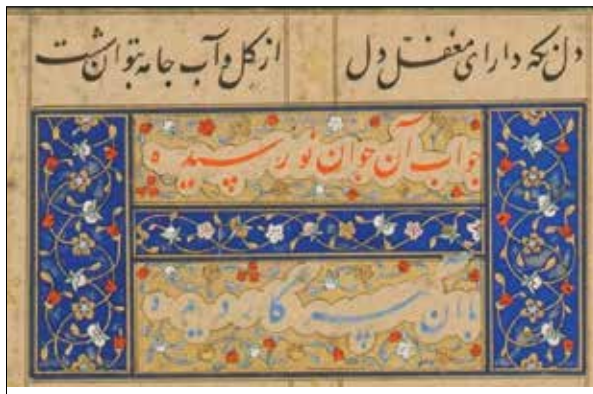 دل نکه دار ای مغفّل دل از کل و آب جامه بتوان شست
جواب آن جوان نو رسیده
با آن پیر کار دیده